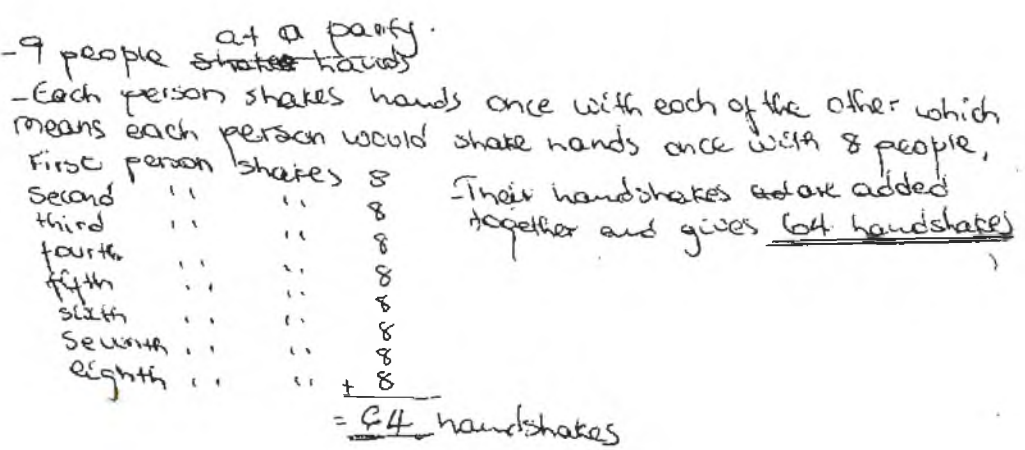 at a party.
- 9 people shakes hands
- Each person shakes hands once with each of the other which
means each person would shake hands once with 8 people,
First person shakes 8
Second " " 8
third " " 8
fourth " " 8
fifth " " 8
sixth " " 8
Seventh " " 8
eighth " " + 8
= 64 handshakes
- Their handshakes are added
together and gives 64 handshakes